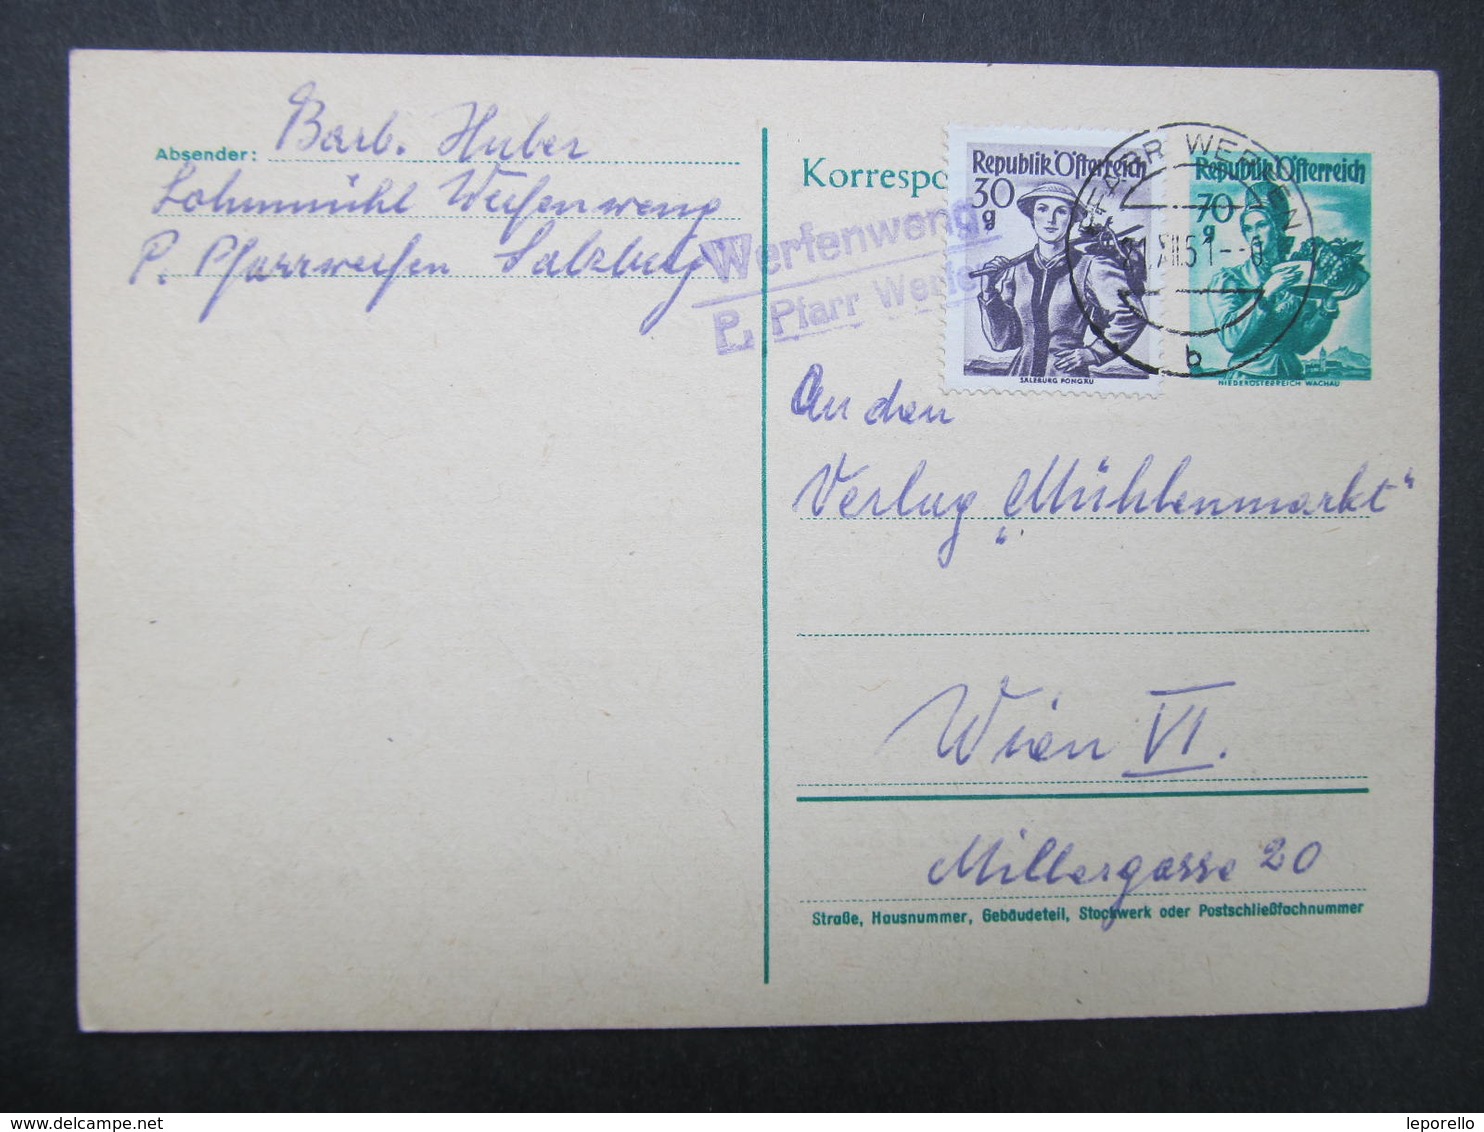 Absender: Barb. Huber
Lohnmühl Werfenweng
P. Pfarrwerfen Salzburg
Werfenweng
P. Pfarr Werfe
Korrespo
Republik Österreich
30 g
SALZBURG PONGAU
Republik Österreich
70 g
NIEDERÖSTERREICH WACHAU
PFARR WERFEN
21.XII.51
b
An den
Verlag „Mühlenmarkt“
Wien VI.
Millergasse 20
Straße, Hausnummer, Gebäudeteil, Stockwerk oder Postschließfachnummer
leporello